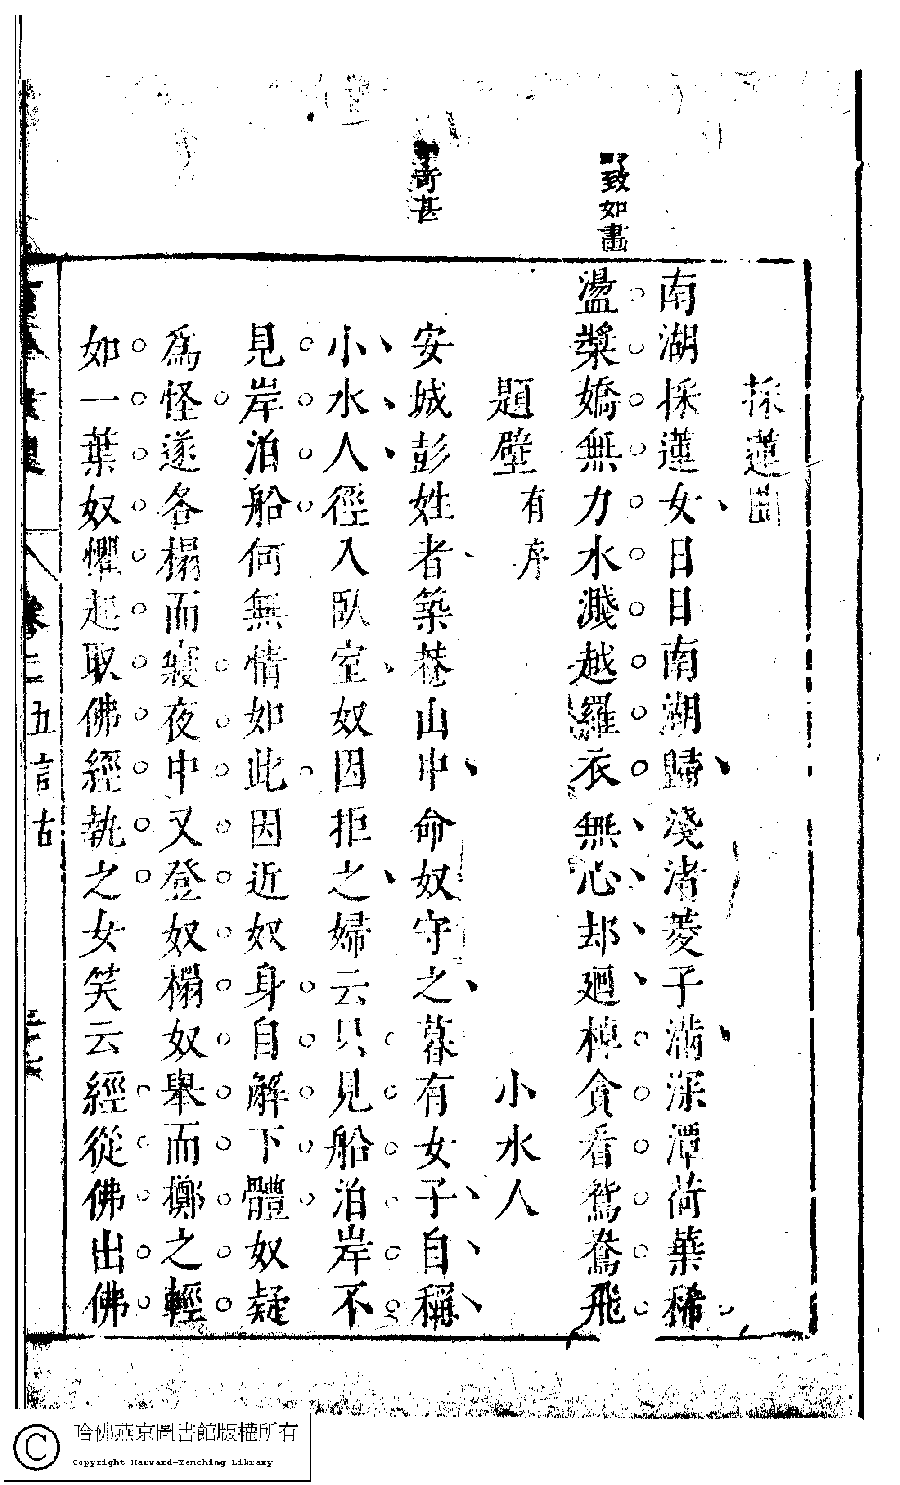 致如畵
奇甚
採蓮曲
南湖採蓮女日日南湖歸淺渚菱子滿深潭荷葉稀
盪槳嬌無力水濺越羅衣無心却廻棹貪看鴛鴦飛
題壁有序 小水人
安城彭姓者築菴山中命奴守之暮有女子自稱
小水人徑入臥室奴因拒之婦云只見船泊岸不
見岸泊船何無情如此因近奴身自解下體奴疑
為怪遂各榻而寢夜中又登奴榻奴舉而擲之輕
如一葉奴懼起取佛經執之女笑云經從佛出佛
卷二 五言古
哈佛燕京圖書館版權所有
Copyright Harvard-Yenching Library